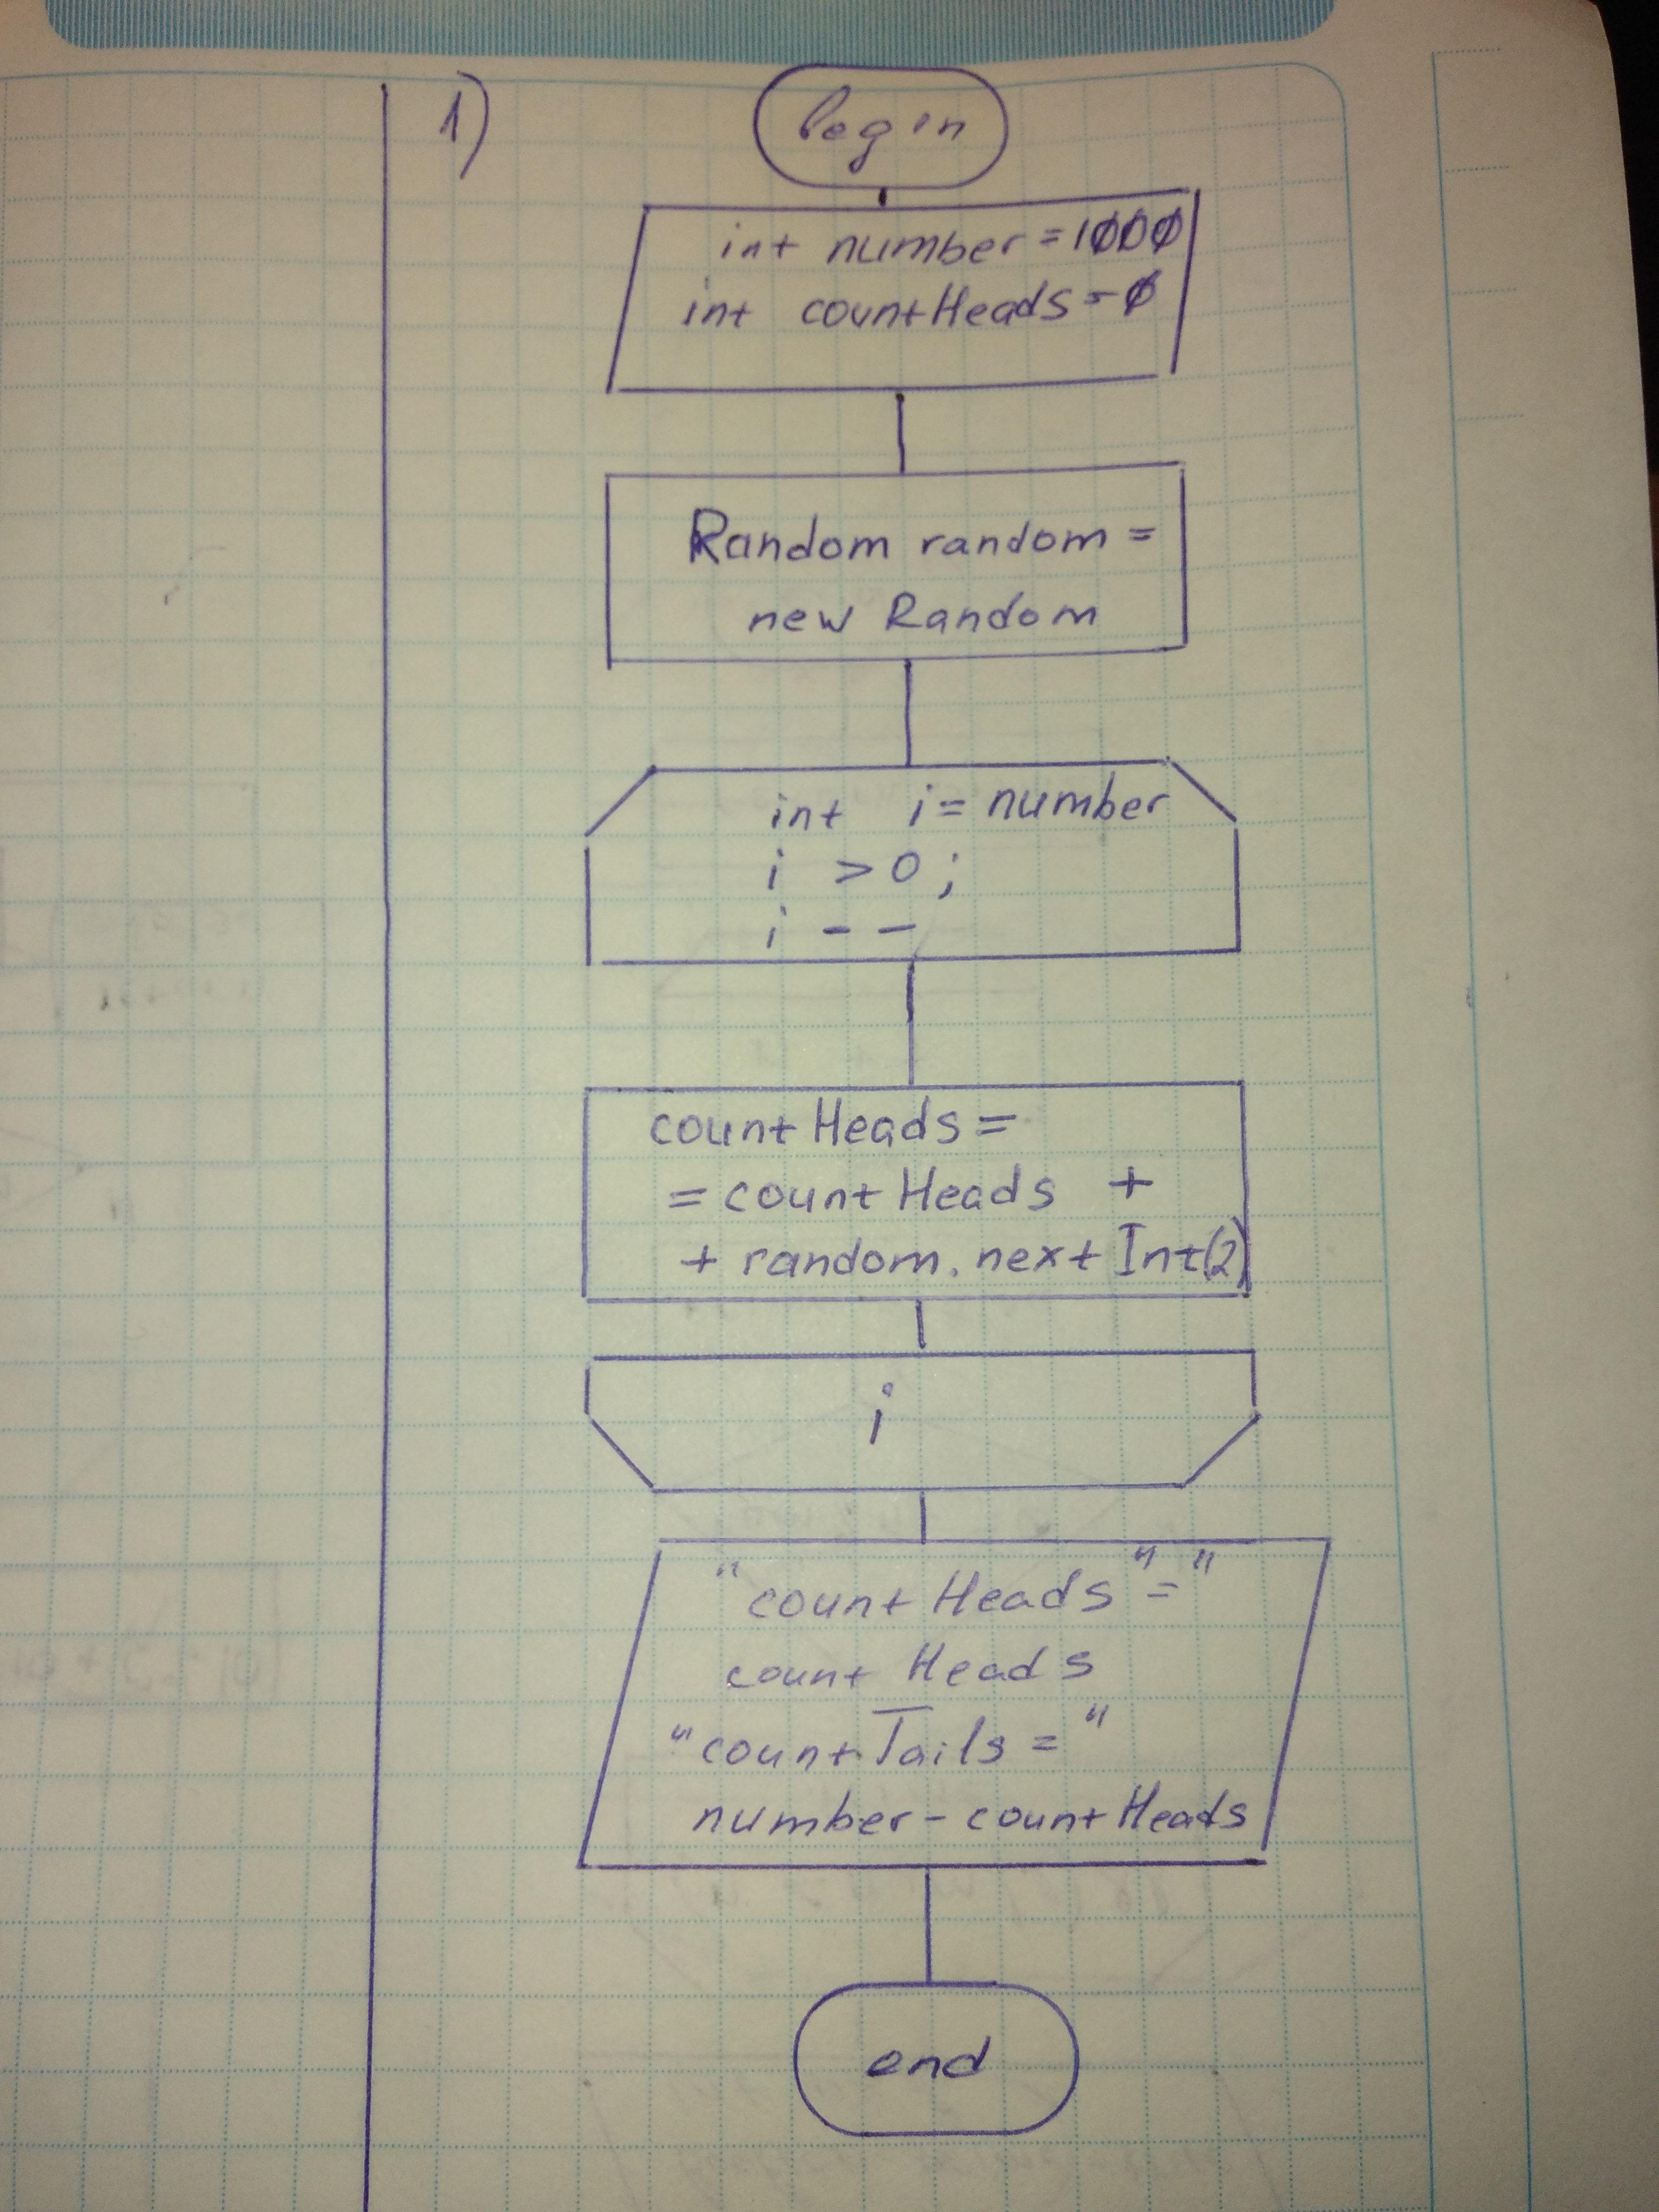 1)
begin
int number = 1000
int countHeads = 0
Random random =
new Random
int i = number
i > 0 ;
i - -
countHeads =
= countHeads +
+ random. nextInt(2)
i
"countHeads" = "
countHeads
"countTails = "
number - countHeads
end